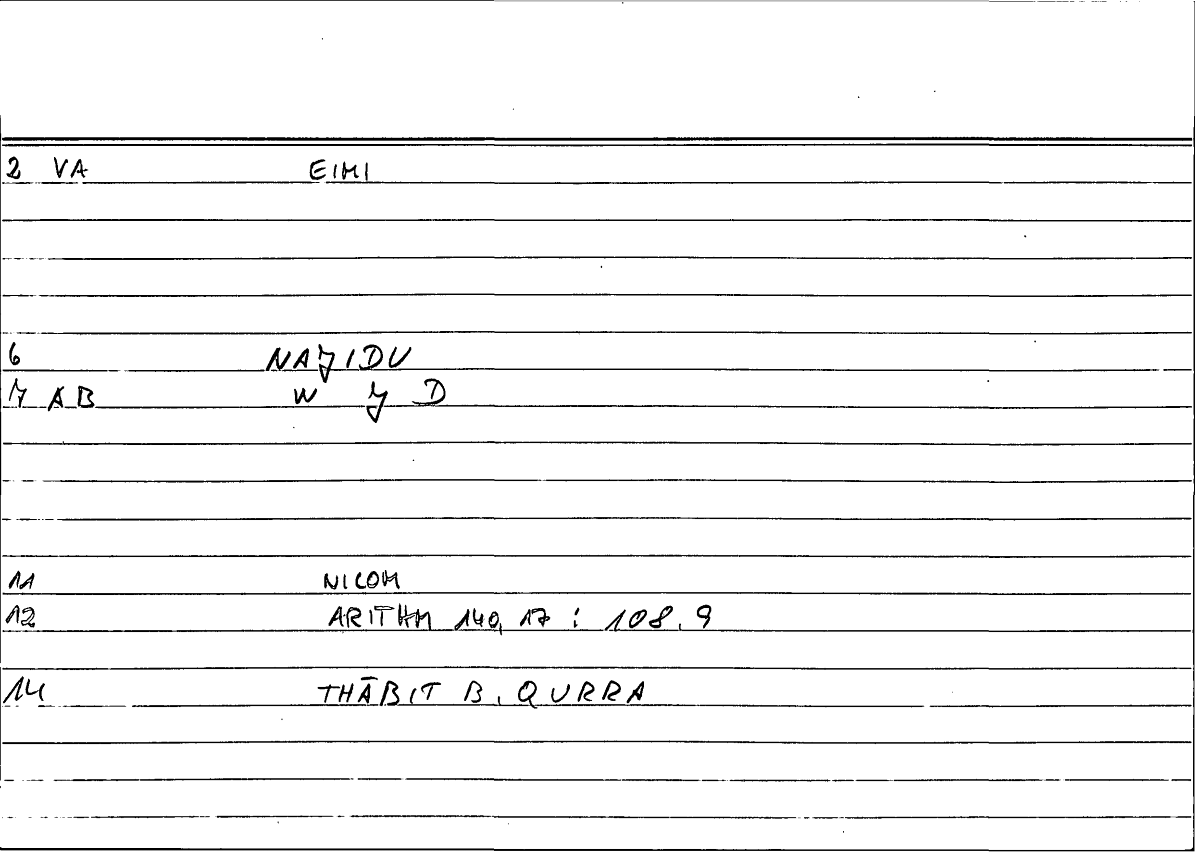 2 VA EIMI
6 NAJIDU
7 AB W J D
11 NICOM
12 ARITHM 140, 17 : 108.9
14 THĀBIT B. QURRA